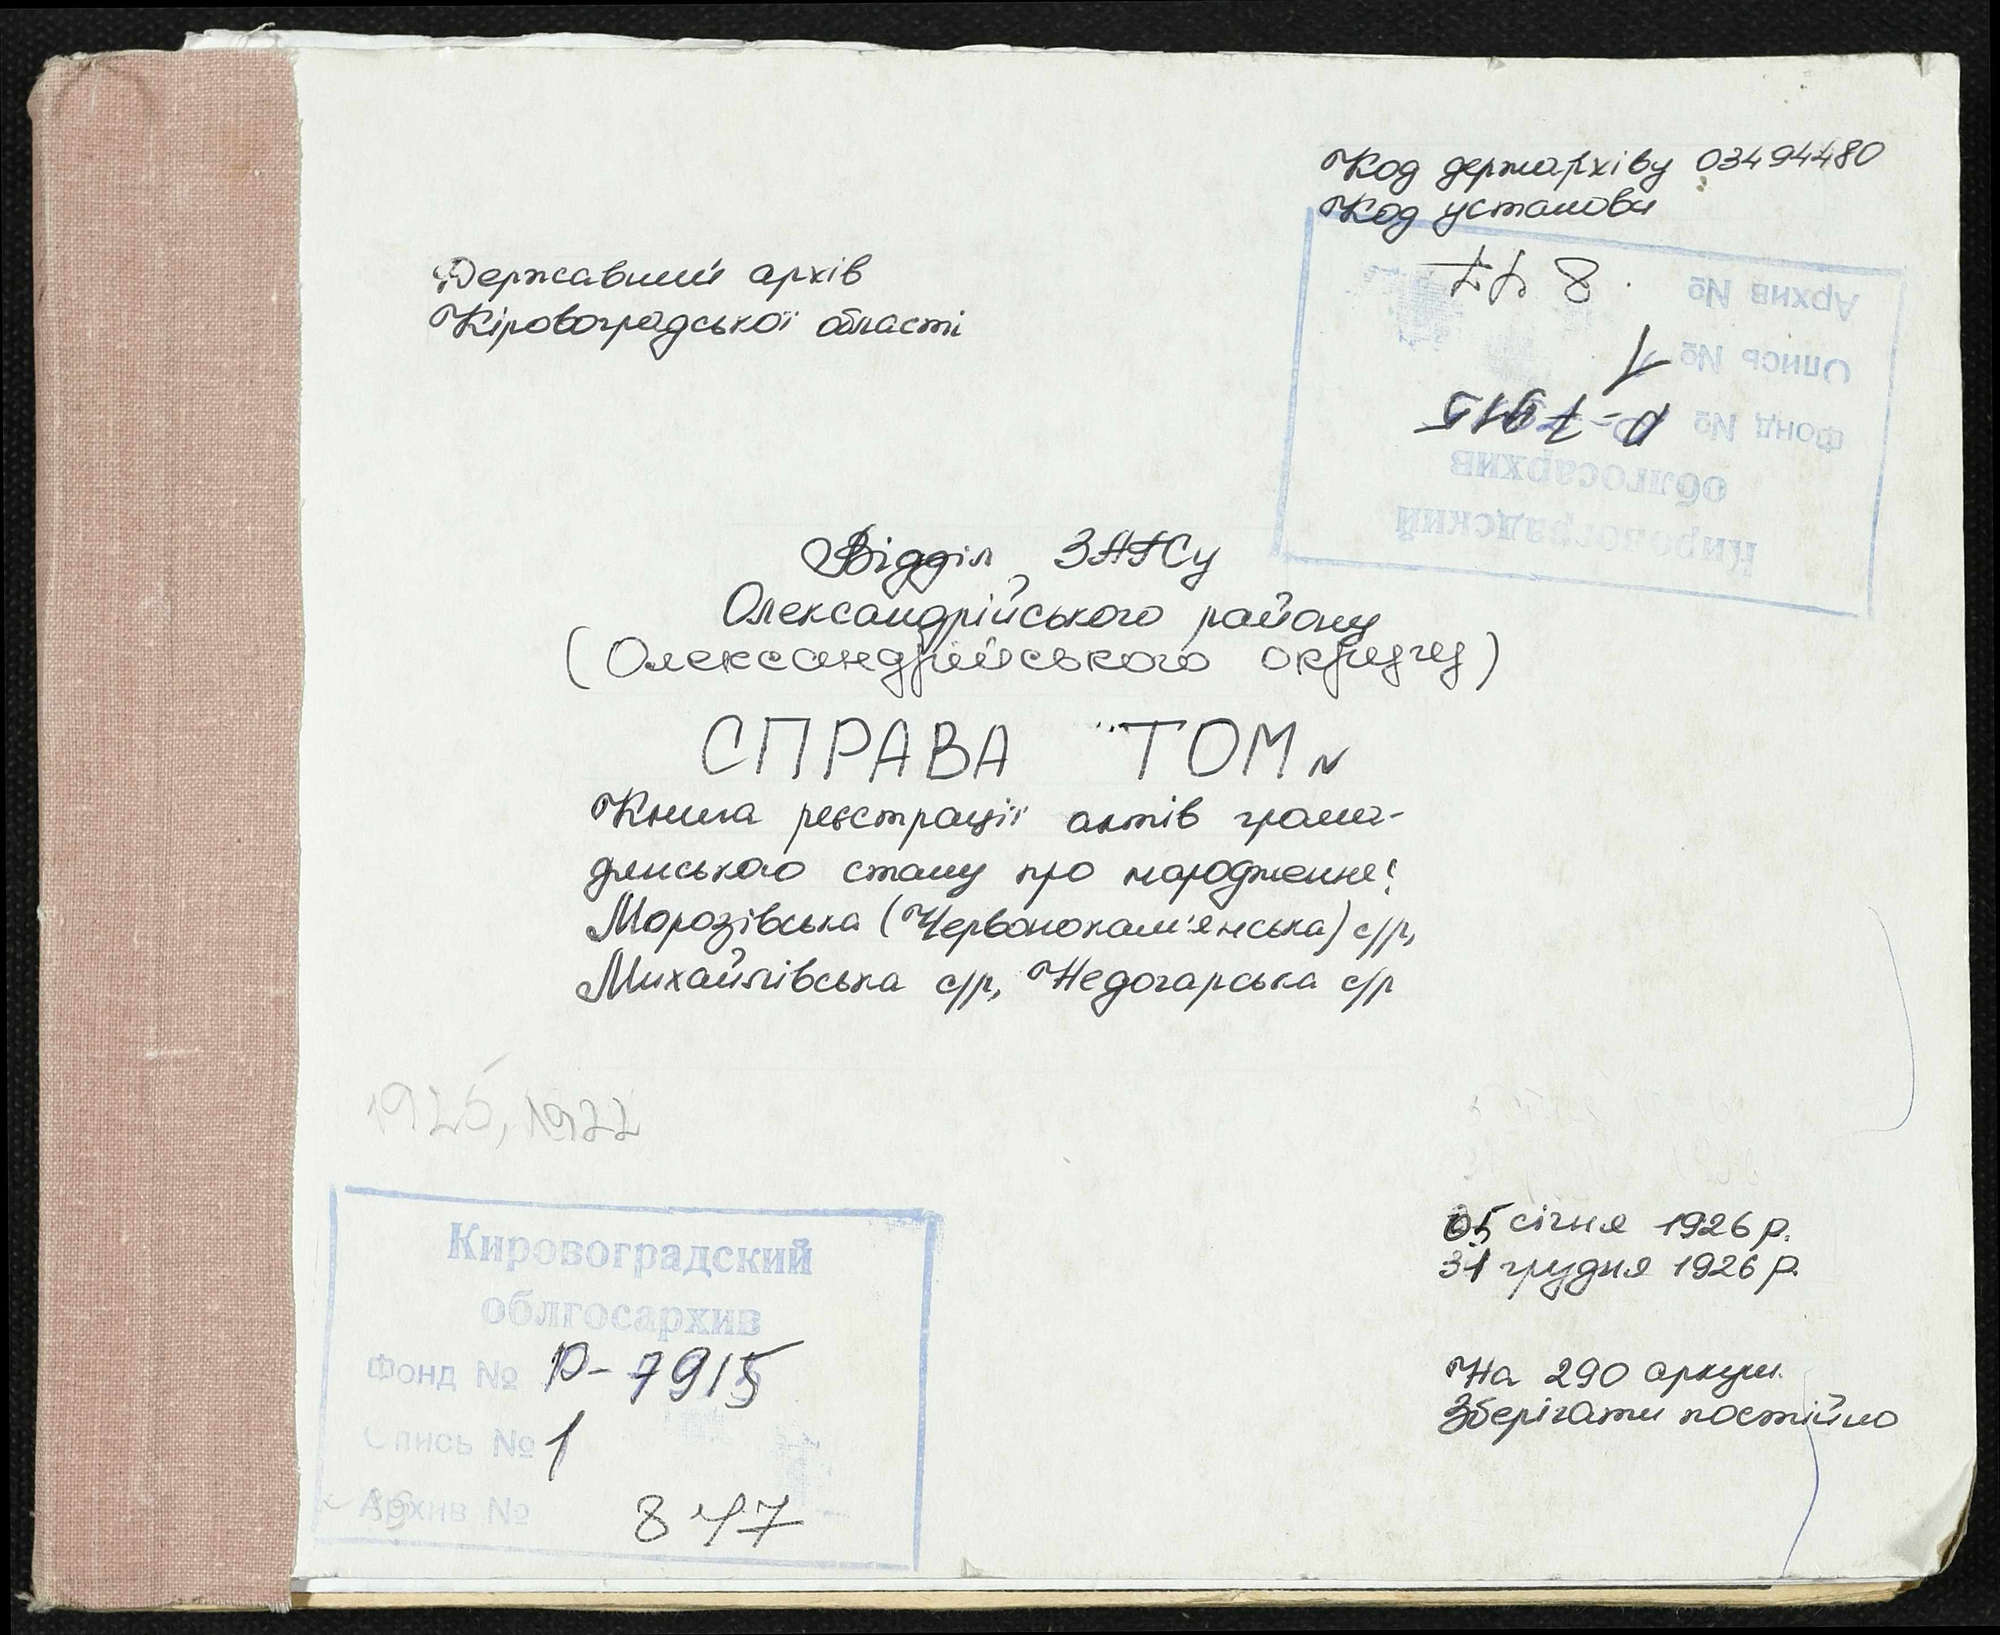 Код держархіву 03494480
Код установи
Державний архів
Кіровоградської області
Кировоградский
облгосархив
Фонд № Р-7915
Опись № 1
Архив № 847
Відділ ЗАГСу
Олександрійського району
(Олександрійського округу)
СПРАВА "ТОМ N
Книга реєстрації актів грома-
дянського стану про народження:
Морозівська (Червонокам'янська) с/р,
Михайлівська с/р, Недогарська с/р
1925, 1922
05 січня 1926 р.
31 грудня 1926 р.
На 290 аркуш.
Зберігати постійно
Кировоградский
облгосархив
Фонд № Р-7915
Опись № 1
Архив № 847